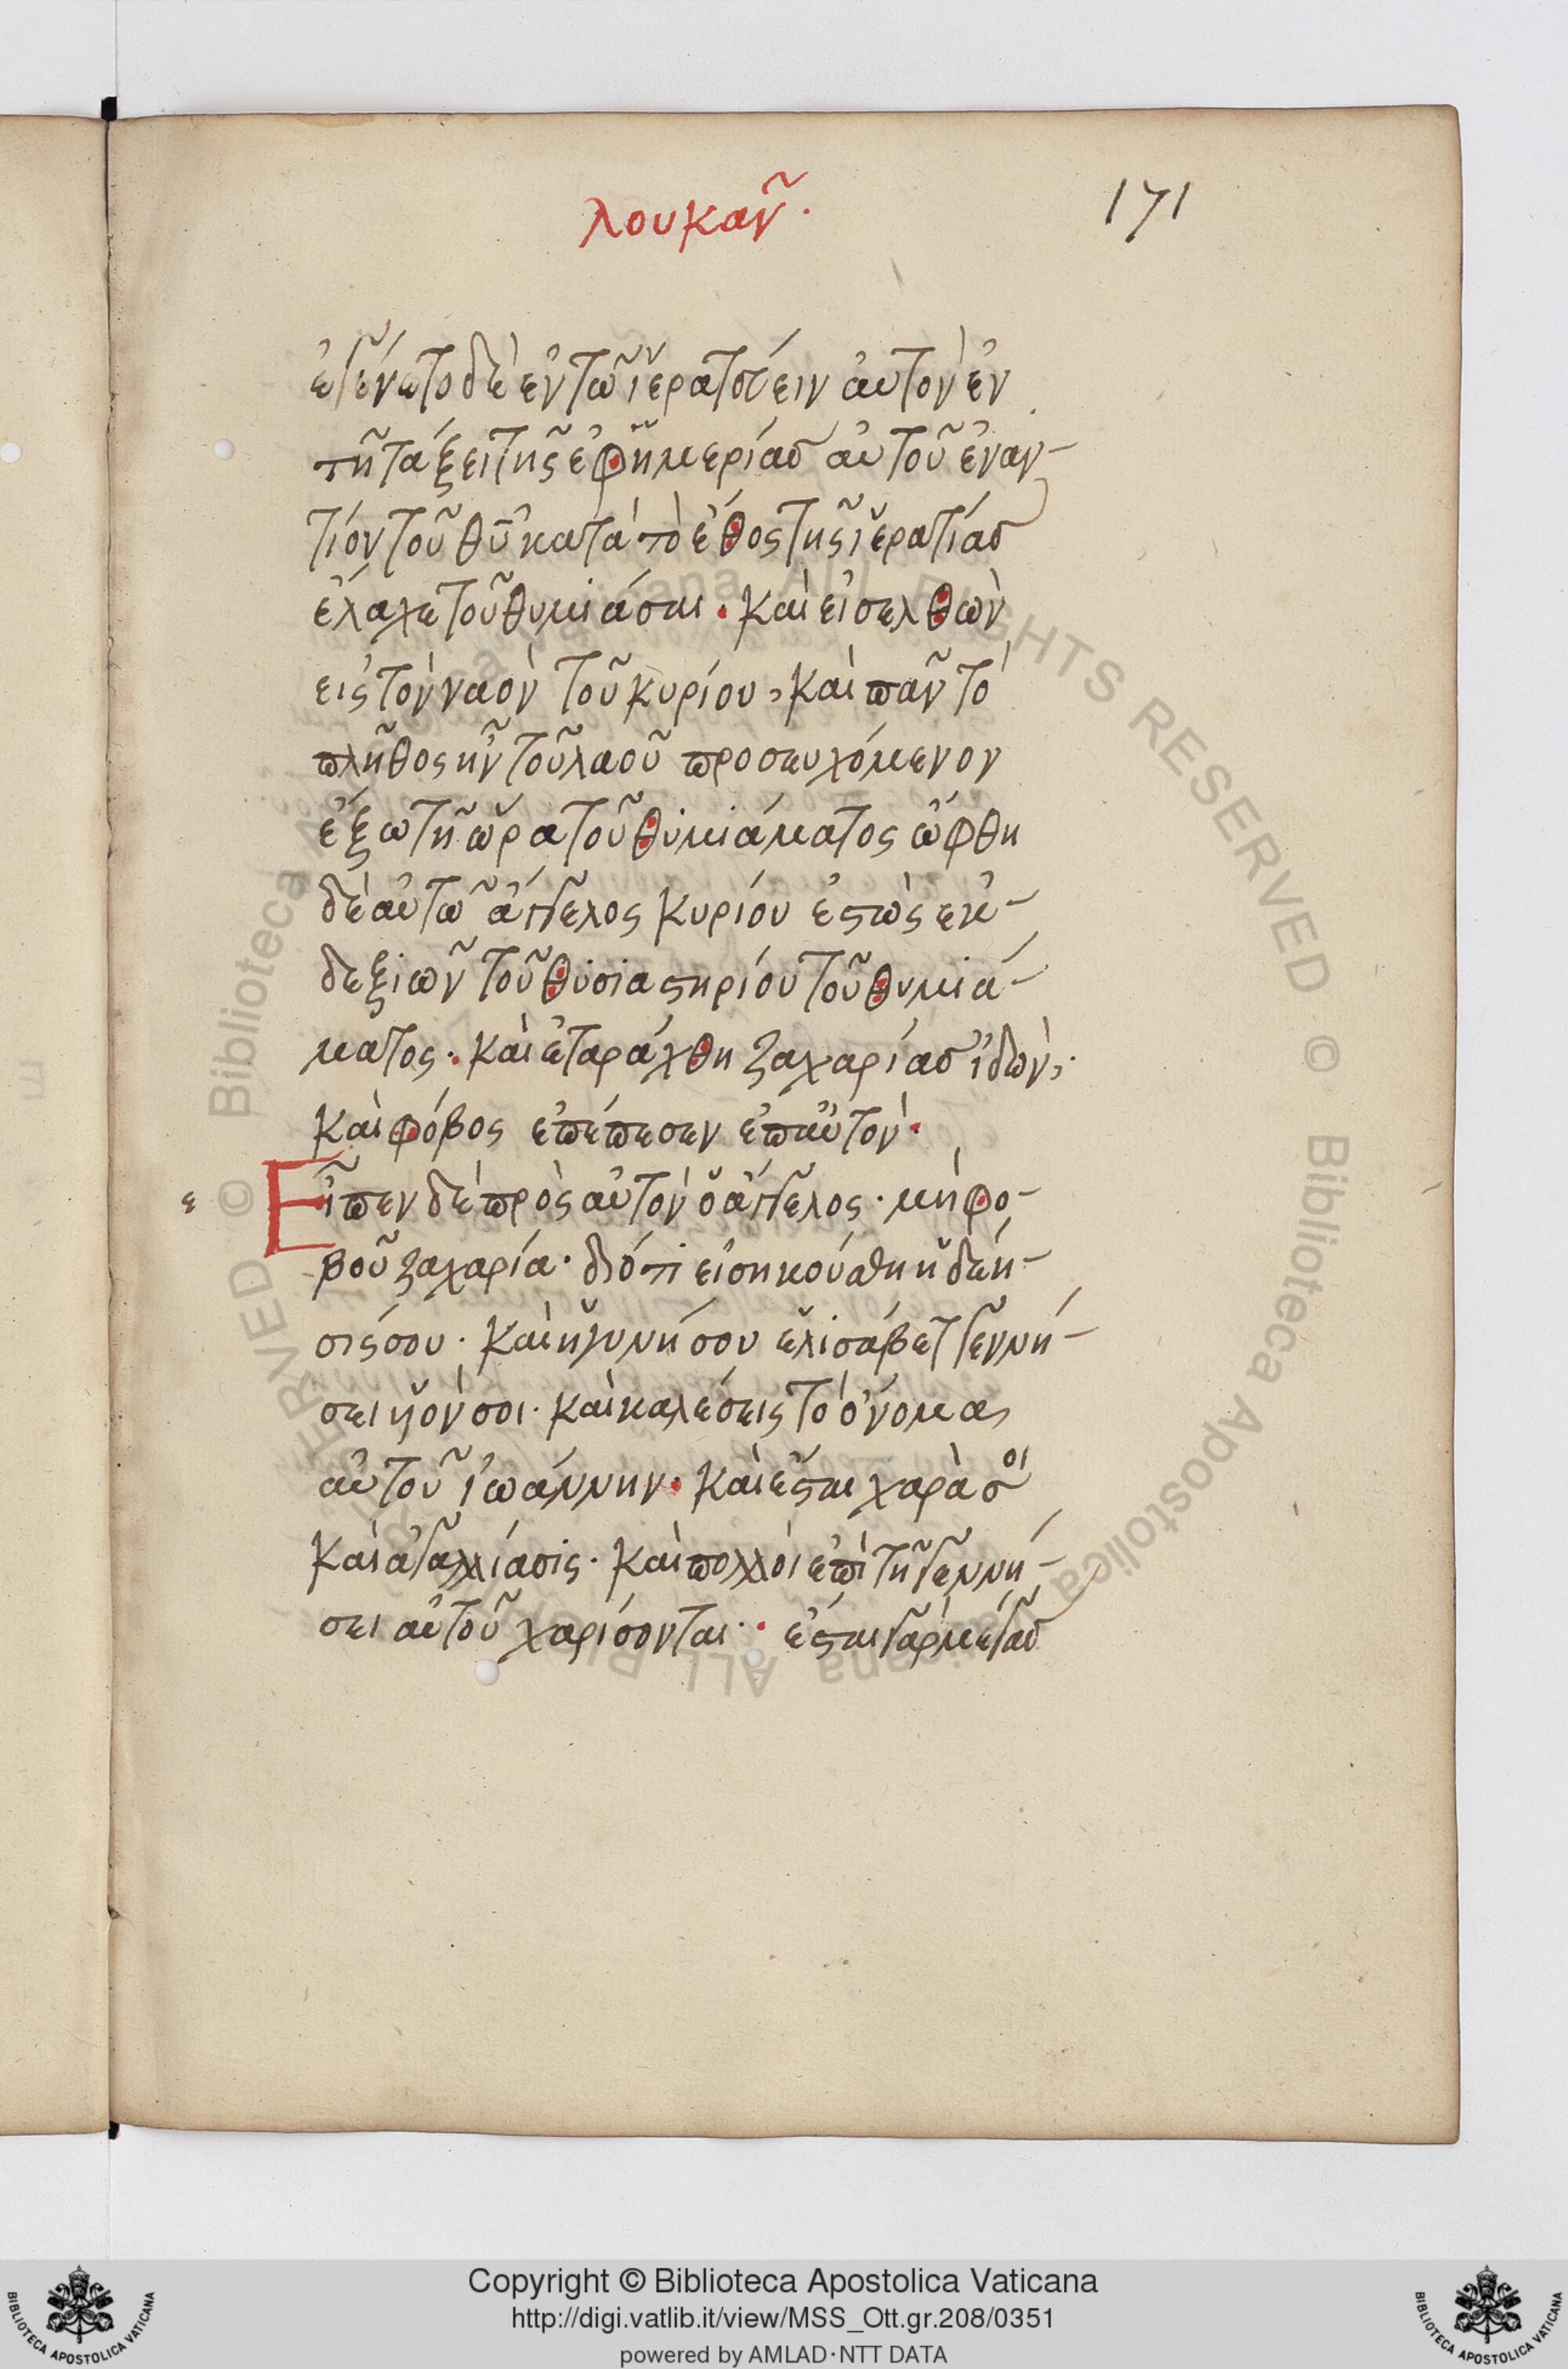 λουκαν῀.
171
ἐγένετο δὲ ἐν τῶ ἱερατεύειν ἀυτὸν ἐν
τῆ τάξει τῆς ἐφημερίας ἀυτοῦ ἐναν-
τίον τοῦ θῦ κατὰ τὸ ἔθος τῆς ἱερατίας
ἔλαχε τοῦ θυμιάσαι. καὶ εἰσελθὼν
εἰς τὸν ναὸν τοῦ κυρίου, καὶ παν῀ τὸ
πλῆθος ἦν τοῦ λαοῦ προσευχόμενον
ἔξω τῆ ὥρα τοῦ θυμιάματος ὤφθη
δὲ ἀυτῶ ἄγγελος κυρίου ἑστὼς ἐκ-
δεξιων῀ τοῦ θυσιαστηρίου τοῦ θυμιά-
ματος. καὶ ἐταράχθη ζαχαρίας ἰδὼν,.
καὶ φόβος ἐπέπεσεν ἐπ αὐτὸν.
ε Εἶπεν δὲ πρὸς αὐτὸν ὁ ἄγγελος. μὴ φο-
βοῦ ζαχαρία. διότι εἰσηκούσθη ἡ δέη-
σις σου. καὶ ἡ γυνή σου ἐλισάβετ γεννή-
σει υἱὸν σοι. καὶ καλέσεις τὸ ὄνομα
αὐτοῦ ἰωάννην. καὶ ἔσται χαρὰ σοι
καὶ ἀγαλλίασις. καὶ πολλοὶ ἐπὶ τῆ γεννή-
σει αὐτοῦ χαρίσονται. ἔσται γὰρ μέγας
Copyright © Biblioteca Apostolica Vaticana
http://digi.vatlib.it/view/MSS_Ott.gr.208/0351
powered by AMLAD·NTT DATA